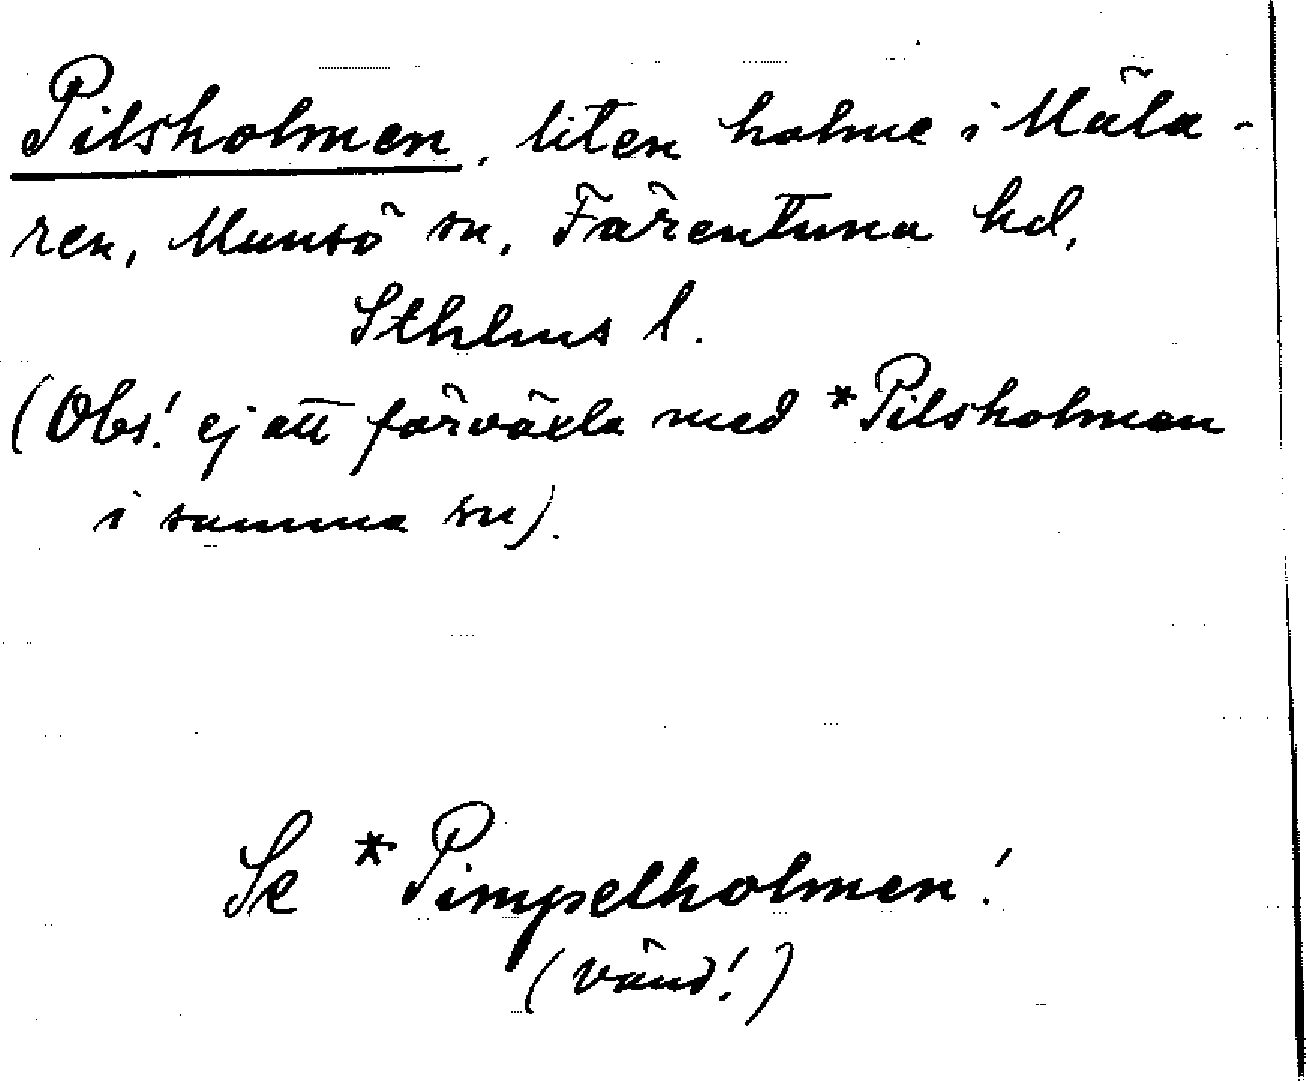 Pilsholmen, liten holme i Mäla-
ren, Munsö sn, Färentuna hd,
Sthlms l.
(Obs! ej att förväxla med *Pilsholmen
i samma sn).
Se *Pimpelholmen!
(vänd!)